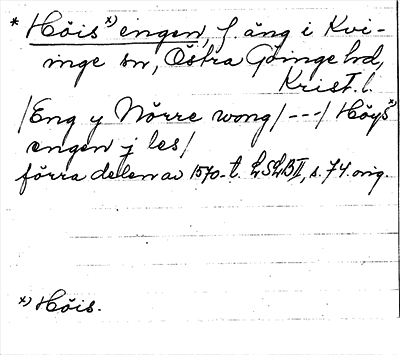 * Höis x) engen, f. äng i Kvi-
inge sn, Östra Göinge hd,
Krist. l.
/Eng y Nörre wong/---/Höys x)
engen j les/
förra delen av 1570-t. LSLB II, s. 74 orig.
x) Höis.